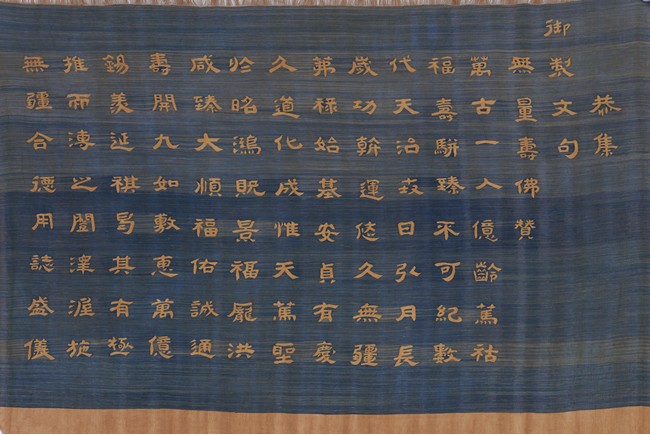 恭集
御製文句
無量壽佛贊
萬古一人億齡篤祜
福壽駢臻不可紀數
代天日引月長
歲功斡運悠久無疆
茀祿始基安貞有慶
久道化成惟天篤聖
於昭鴻貺景福龐洪
咸臻大順福佑誠通
壽開九如敷惠萬億
錫羨延祺曷其有極
推而溥之闓澤渥施
無疆合德用誌盛儀